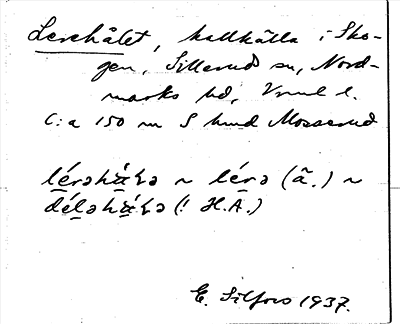 Lerehålet, kallkälla i Sko-
gen, Sillerud sn, Nord-
marks hd, Vrml l.
C:a 150 m S Mosserud
lérəhǻɫə ~ lérə (ä̃.) ~
déləhǻɫə (! H.A.)
E. Silfors 1937.